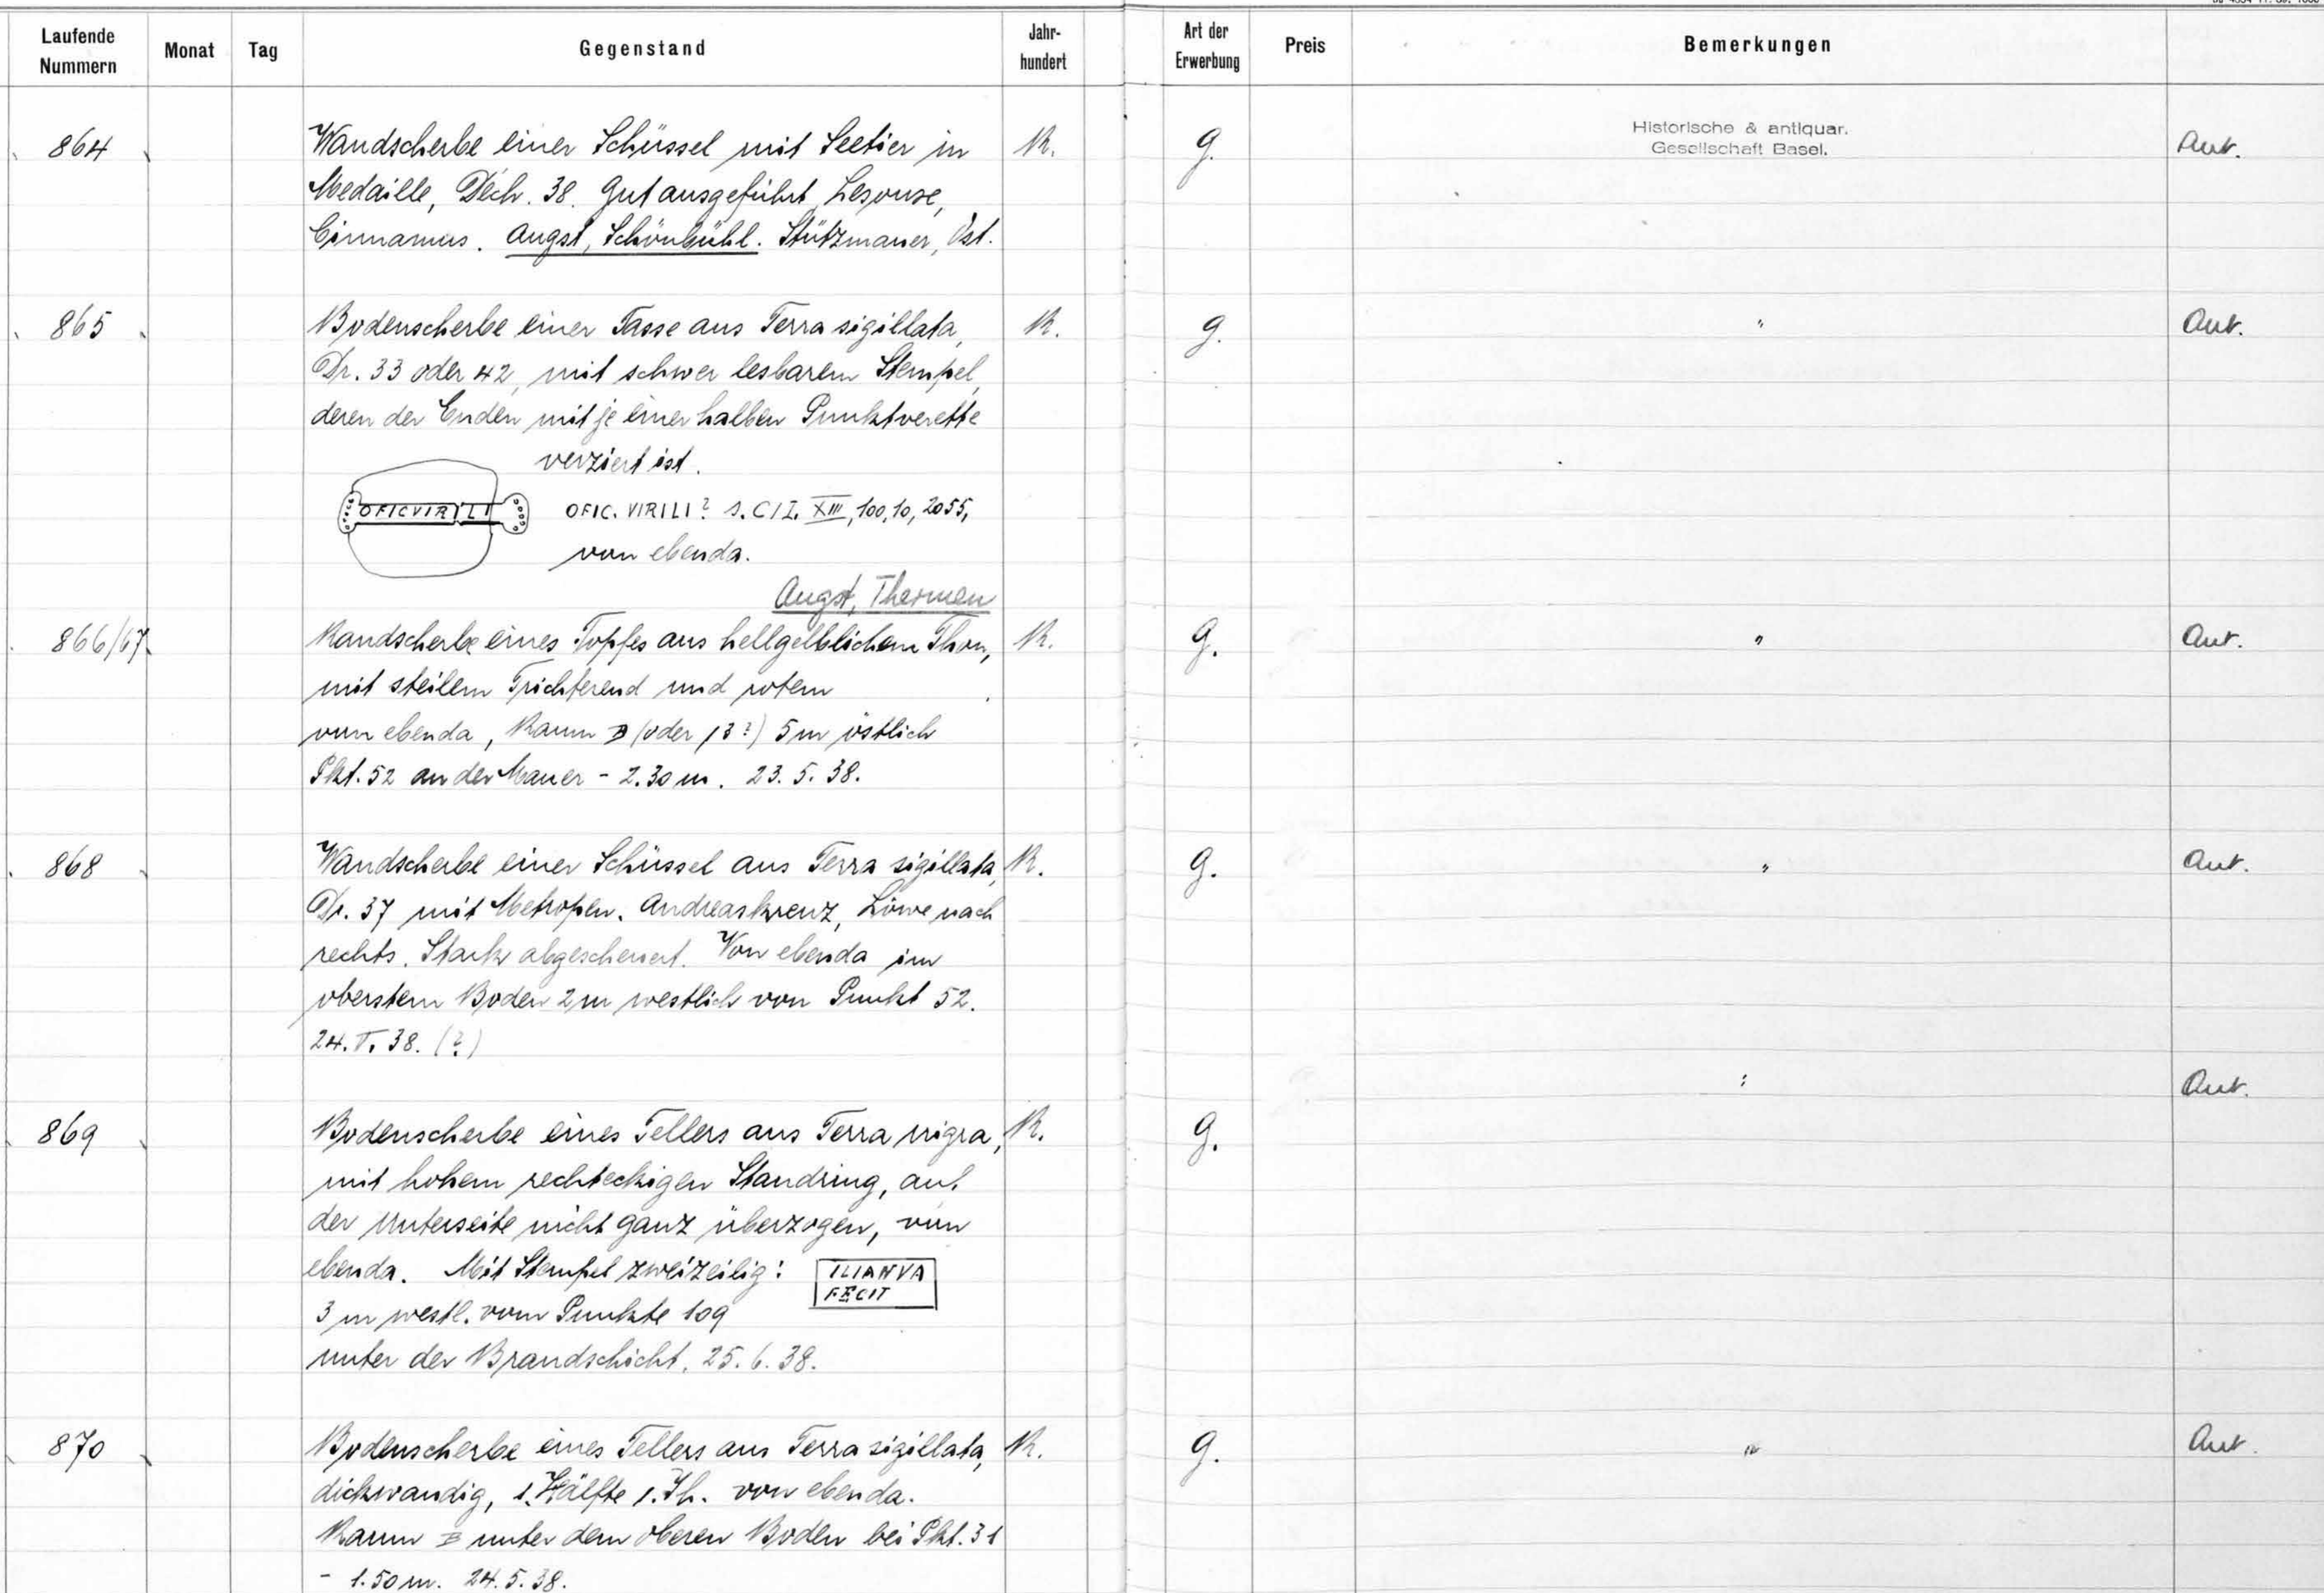 Laufende Nummern Monat Tag Gegenstand Jahr-hundert Art der Erwerbung Preis Bemerkungen
864 Wandscherbe einer Schüssel mit Seetier in R. G. Historische & antiquar. Gesellschaft Basel. Ant.
Medaille, Dech. 38. Gut ausgeführt, Lesouse,
Cinnamus. Augst, Schönbühl. Stützmauer, Ost.
865 Bodenscherbe einer Tasse aus Terra sigillata, R. G. " Ant.
Dr. 33 oder 42, mit schwer lesbarem Stempel,
deren der Enden mit je einer halben Punktverette
verziert ist.
OFICVIRILI OFIC. VIRILI? s. CIL XIII, 100,10, 2055,
von ebenda.
Augst, Thermen
866/67 Randscherbe eines Topfes aus hellgelblichem Thon, R. G. " Ant.
mit steilem Trichterend und rotem
von ebenda, Raum B (oder 13?) 5 m östlich
Pkt. 52 an der Mauer - 2.30 m. 23. 5. 38.
868 Wandscherbe einer Schüssel aus Terra sigillata, R. G. " Ant.
Dr. 37 mit Metropen. Andreaskreuz, Löwe nach
rechts. Stark abgescheuert. Von ebenda im
oberstem Boden 2 m westlich von Punkt 52.
24. V. 38. (?)
" Ant.
869 Bodenscherbe eines Tellers aus Terra nigra, R. G.
mit hohem rechteckigen Standring, auf
der Unterseite nicht ganz überzogen, von
ebenda. Mit Stempel zweizeilig: ILIANVA
FECIT
3 m westl. vom Punkte 109
unter der Brandschicht, 25. 6. 38.
870 Bodenscherbe eines Tellers aus Terra sigillata, R. G. " Ant.
dickwandig, 1. Hälfte 1. Jh. von ebenda.
Raum B unter dem oberen Boden bei Pkt. 31
- 1.50 m. 24. 5. 38.